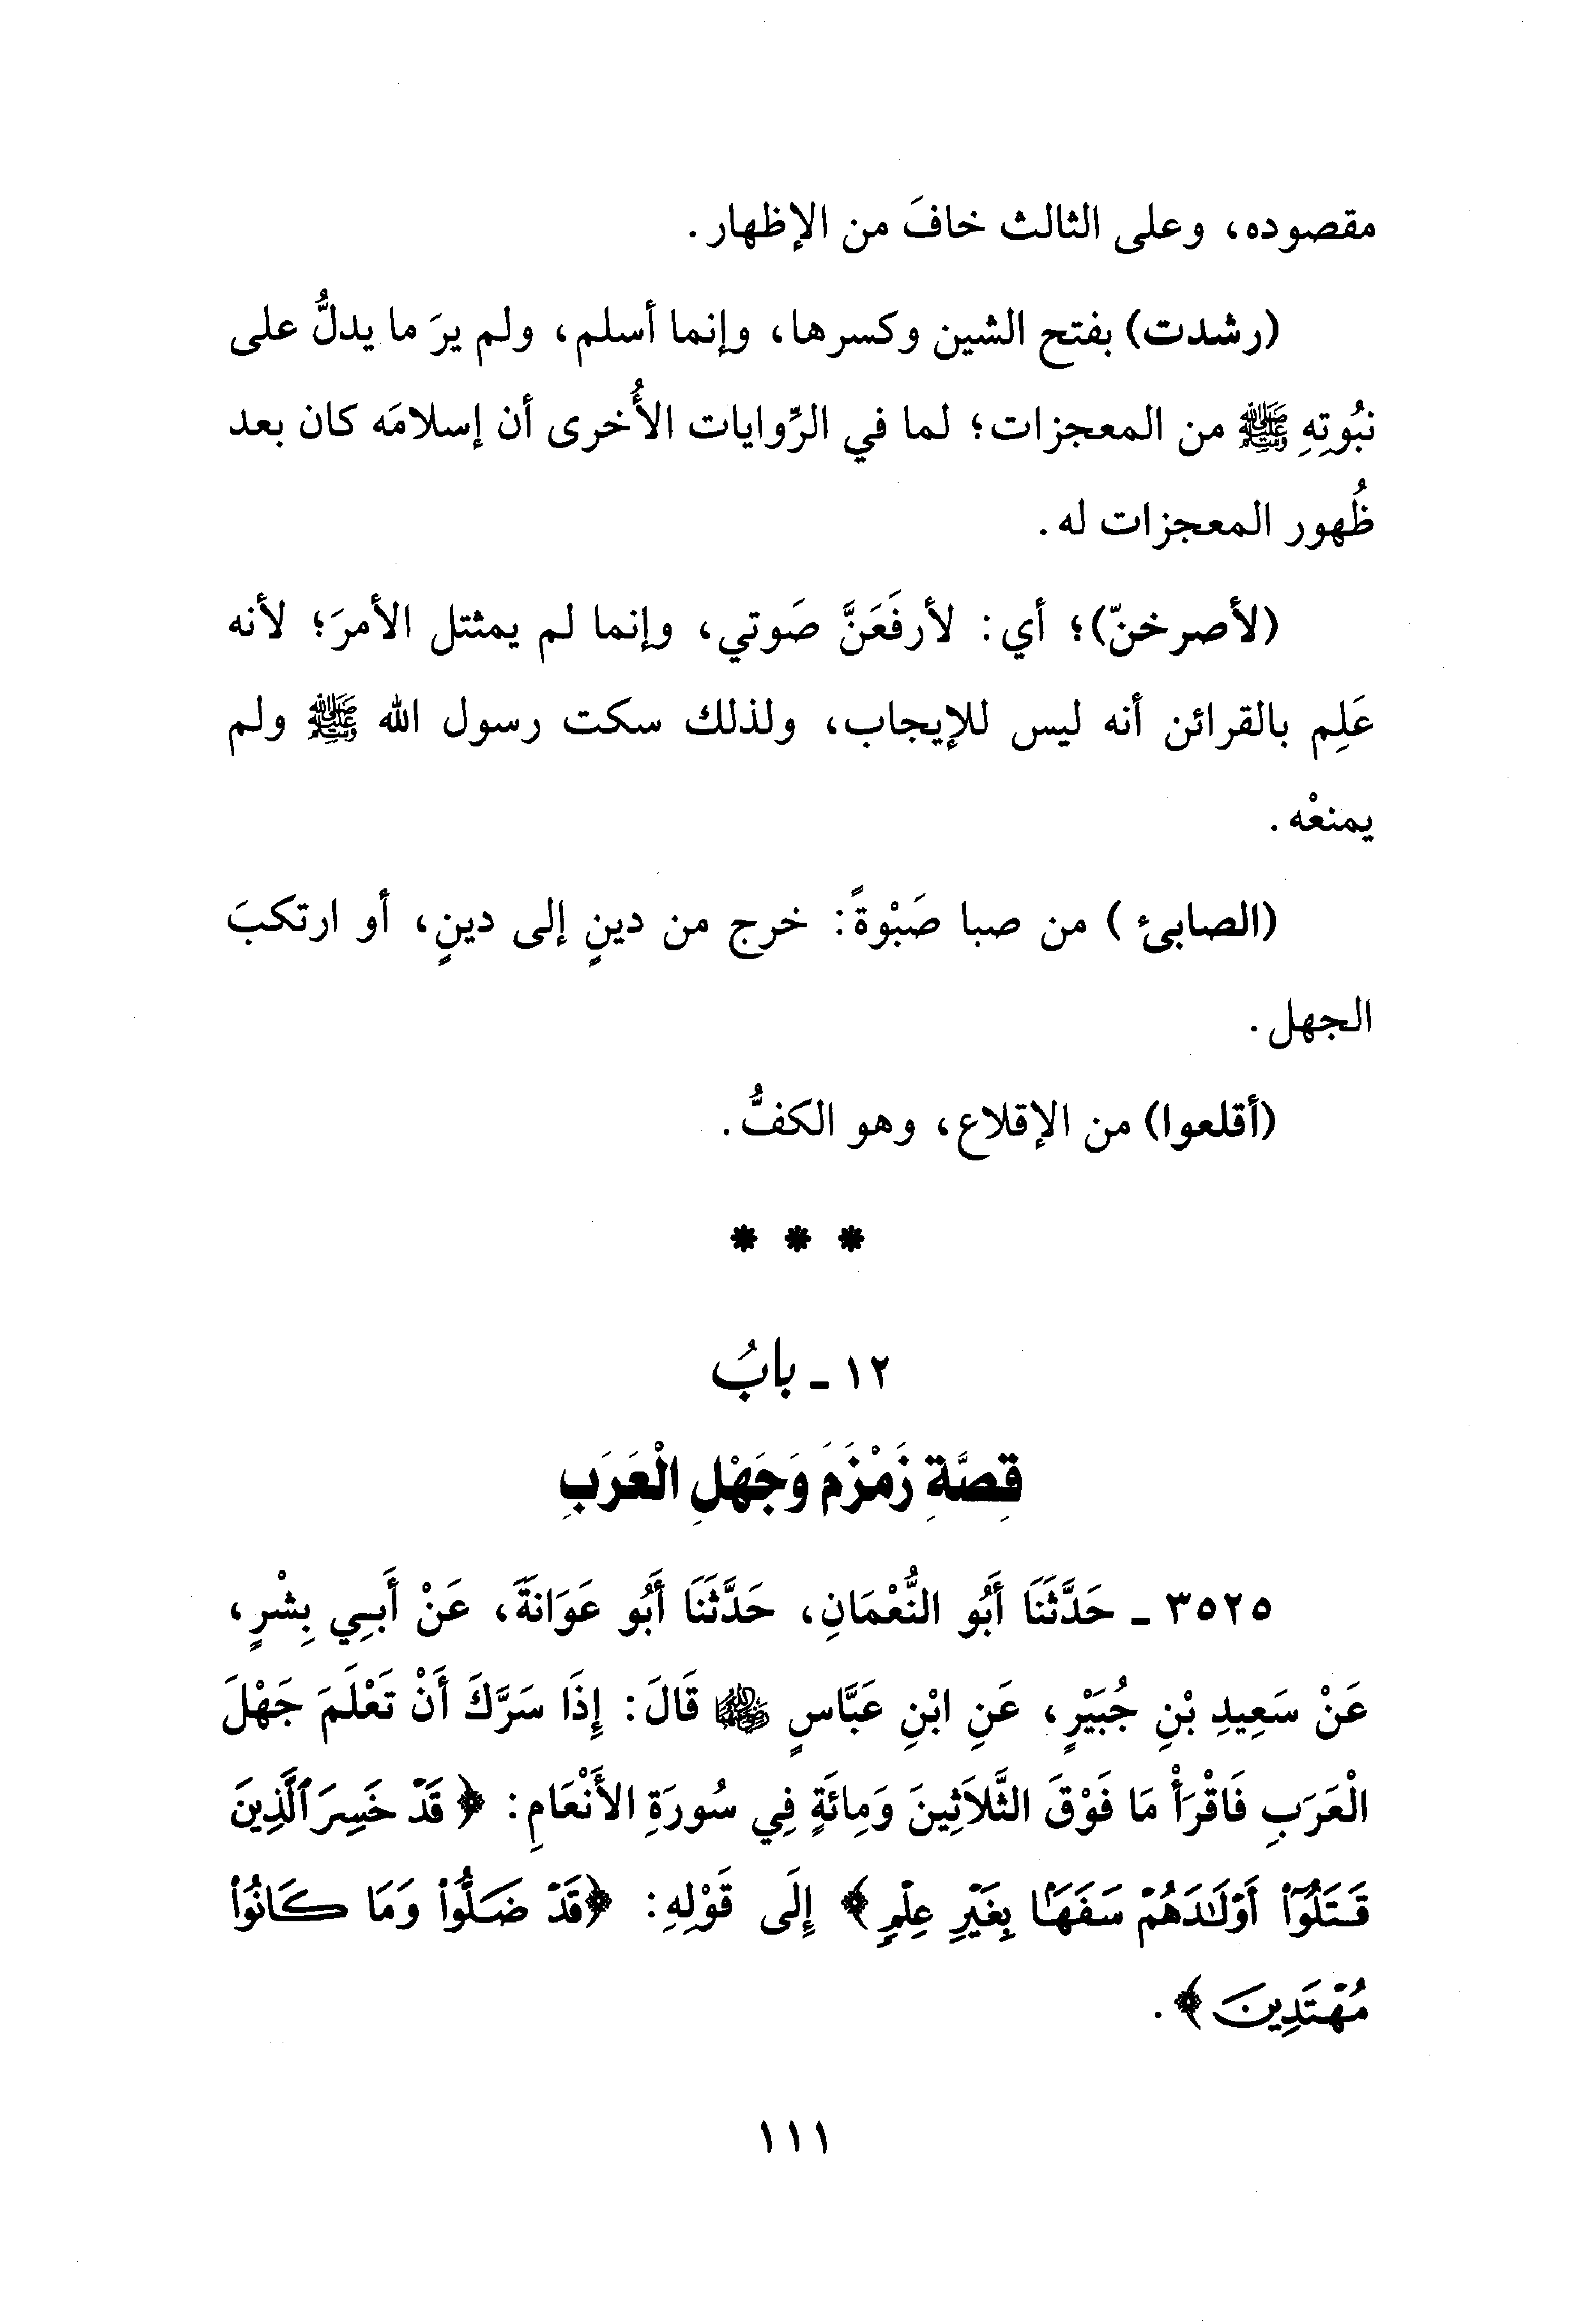 مقصوده، وعلى الثالث خافَ من الإظهار.
(رشدت) بفتح الشين وكسرها، وإنما أسلم، ولم يرَ ما يدلُّ على
نبُوتِهِ ﷺ من المعجزات؛ لما في الرِّوايات الأُخرى أن إسلامَه كان بعد
ظُهور المعجزات له.
(لأصرخنّ)؛ أي: لأرفَعَنَّ صَوتي، وإنما لم يمتثل الأمرَ؛ لأنه
عَلِم بالقرائن أنه ليس للإيجاب، ولذلك سكت رسول الله ﷺ ولم
يمنعْه.
(الصابئ) من صبا صَبْوةً: خرج من دينٍ إلى دينٍ، أو ارتكبَ
الجهل.
(أقلعوا) من الإقلاع، وهو الكفُّ.
* * *
١٢ ـ بابُ
قِصَّةِ زَمْزَمَ وَجَهْلِ الْعَرَبِ
٣٥٢٥ ـ حَدَّثَنَا أَبُو النُّعْمَانِ، حَدَّثَنَا أَبُو عَوَانَةَ، عَنْ أَبِي بِشْرٍ،
عَنْ سَعِيدِ بْنِ جُبَيْرٍ، عَنِ ابْنِ عَبَّاسٍ رضي الله عنهما قَالَ: إِذَا سَرَّكَ أَنْ تَعْلَمَ جَهْلَ
الْعَرَبِ فَاقْرَأْ مَا فَوْقَ الثَّلاَثِينَ وَمِائَةٍ فِي سُورَةِ الأَنْعَامِ: ﴿قَدْ خَسِرَ ٱلَّذِينَ
قَتَلُوٓا۟ أَوْلَٰدَهُمْ سَفَهًۢا بِغَيْرِ عِلْمٍ﴾ إِلَى قَوْلِهِ: ﴿قَدْ ضَلُّوا۟ وَمَا كَانُوا۟
مُهْتَدِينَ﴾.
١١١